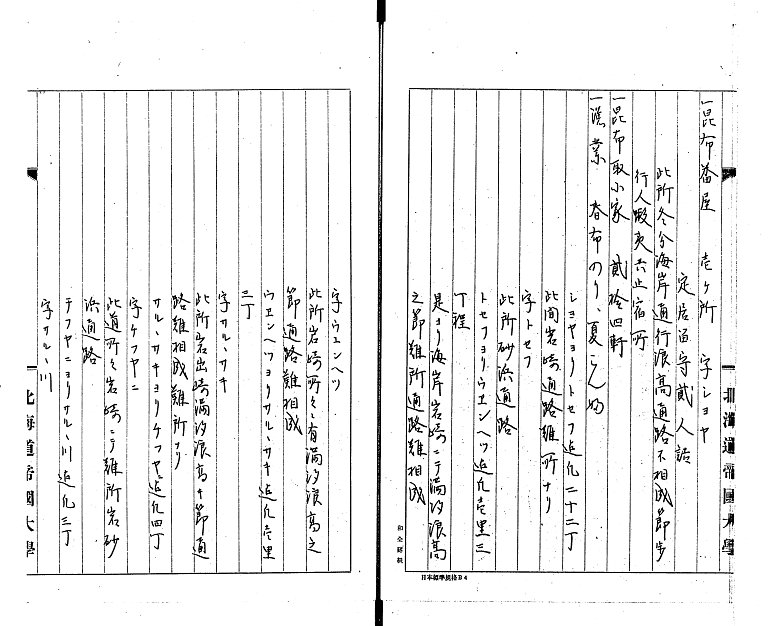 一昆布番屋 壱ヶ所 字ショヤ
定居留守貳人詰
此所冬分海岸通行浪高通路不相成節歩
行人蝦夷共止宿所
一昆布取小家 貳拾四軒
一漁業 春布のり、夏こんぶ
ショヤヨリトセフ迄凡二十二丁
此間岩崎通路難所ナリ
字トセフ
此所砂浜通路
トセフヨリウエンヘツ迄凡壱里三
丁程
是ヨリ海岸岩崎ニテ満汐浪高
之節難所通路難相成
北海道帝國大學
日本標準規格B4
字ウエンヘツ
此所岩崎所々ニ有満汐浪高之
節通路難相成
ウエンヘツヨリサルヽサキ迄凡壱里
三丁
字サルヽサキ
此所岩出崎満汐浪高キ節通
路難相成難所ナリ
サルヽサキヨリケフヤニ迄凡四丁
字ケフヤニ
此道所々岩崎ニテ難所岩砂
浜通路
テフヤニヨリサルヽ川迄凡三丁
字サルヽ川
北海道帝國大學